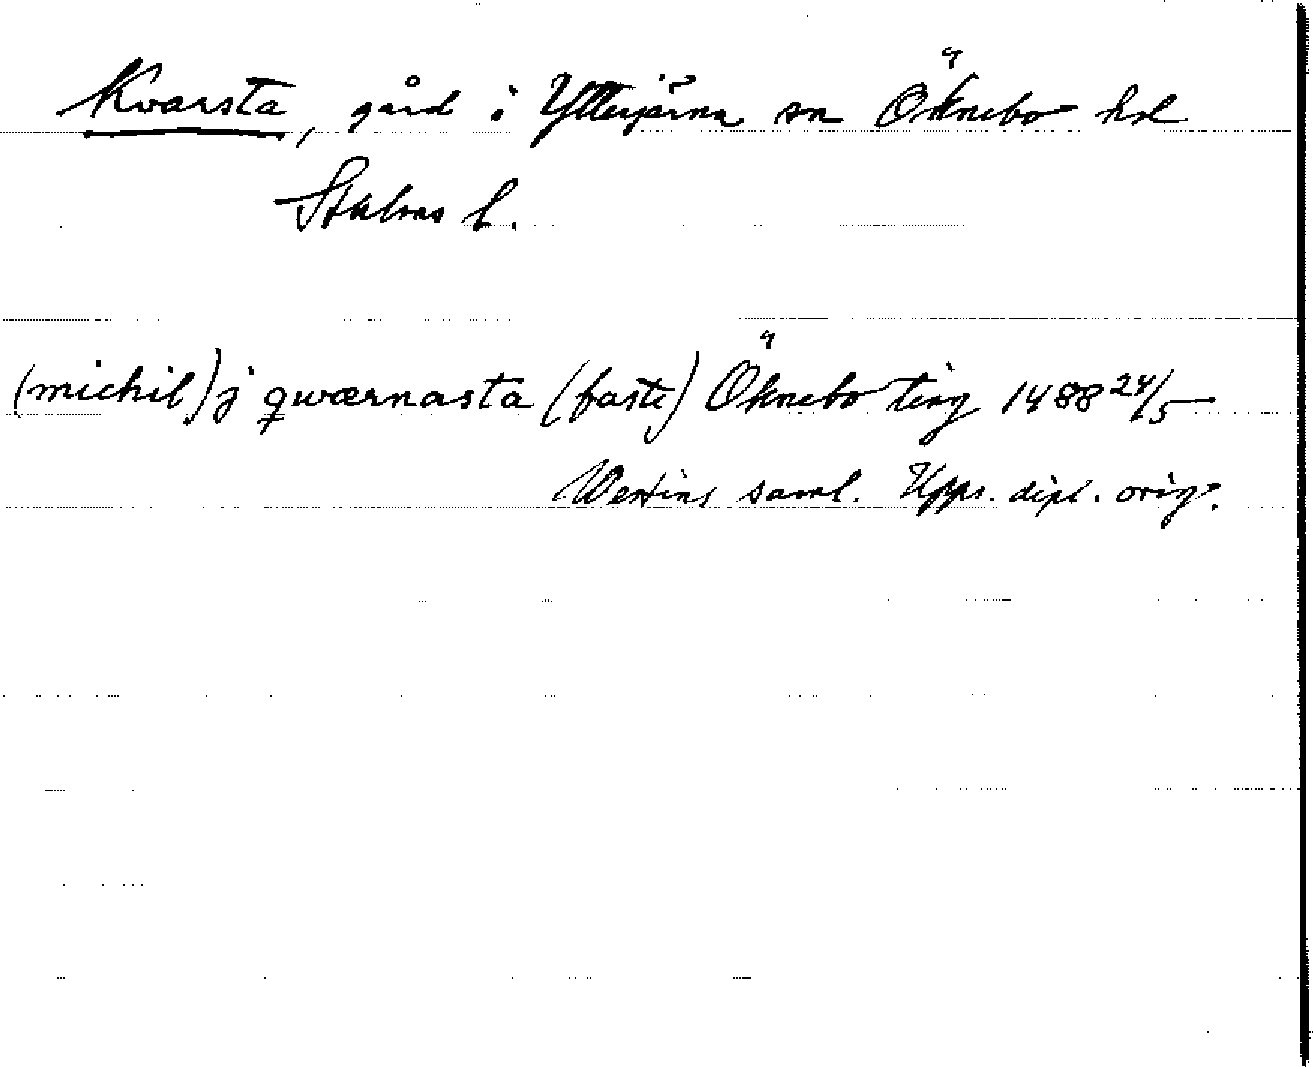 Kvarsta, gård i Ytterjärna sn Öknebo hd
Sthlms l.
(michil) j qwærnasta (faste) Öknebo ting 1488 24/5
Westins saml. Upps. dipl. orig.